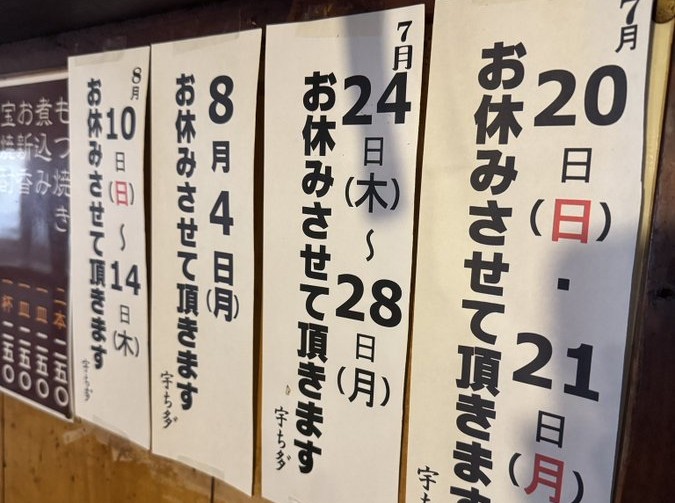 7月
20日(日)・21日(月)
お休みさせて頂きます
宇ち多
7月
24日(木)～28日(月)
お休みさせて頂きます
宇ち多
8月4日(月)
お休みさせて頂きます
宇ち多
8月
10日(日)～14日(木)
お休みさせて頂きます
宇ち多
もつ焼き 二本 二五〇
煮込み 一皿 二五〇
お新香 一皿 二五〇
宝焼酎 一杯 二五〇